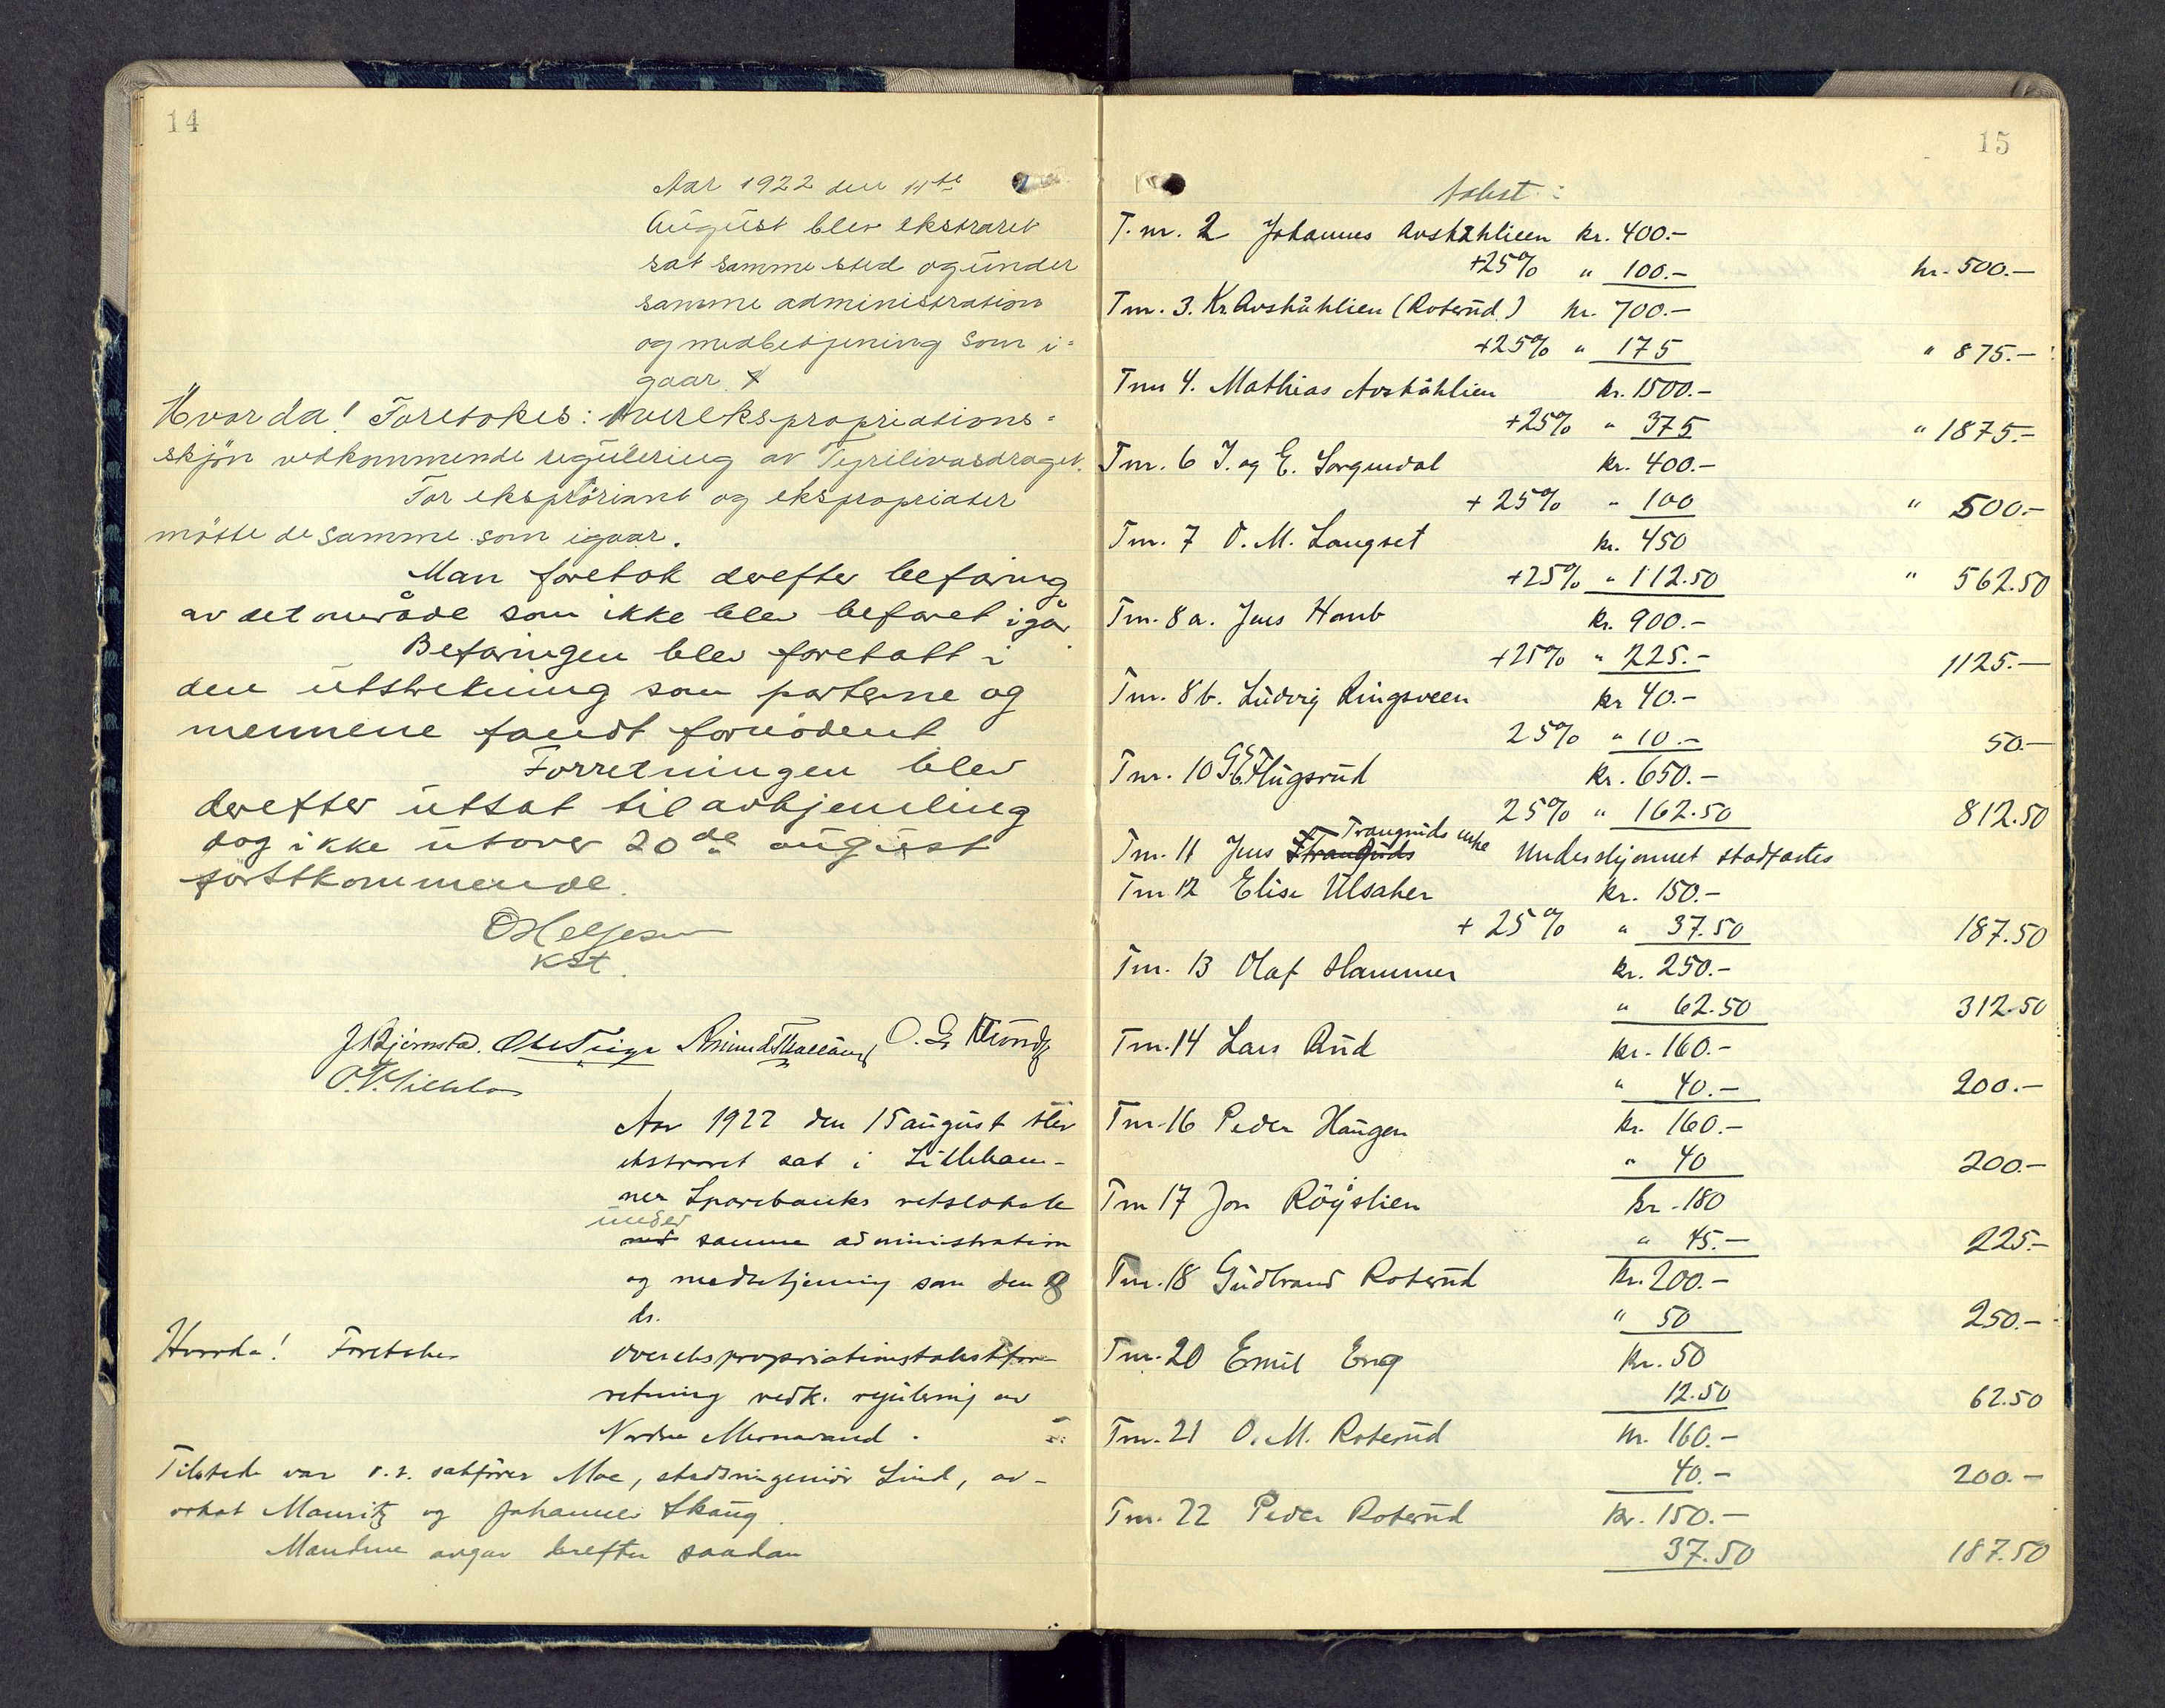 14
Aar 1922 den 11te
August blev ekstraret
sat samme sted og under
samme administration
og medbetjening som i-
gaar.
Hvor da! Foretokes: Overekspropriations-
skjön vedkommende regulering av Tyrilivasdraget.
For ekspropriant og ekspropriater
mötte de samme som igaar.
Man foretok derefter befaring
av det område som ikke blev befaret igår.
Befaringen blev foretatt i
den utstrekning som parterne og
mennene fandt fornödent.
Forretningen blev
derefter utsat til avhjemling
dog ikke utover 20de august
förstkommende.
O Helgesen
Kst.
J. Bjørnstad. O. G.
Aar 1922 den 15 august blev
ekstraret sat i Lilleham-
mer Sparebanks retslokale
under
med samme administration
og medbetjening som den
ds.
Hvorda! Foretokes
overekspropriationstakstfor-
retning vedk. regulering av
Nordre Mesnavand.
Tilstede var o.r. sakfører Moe, stadsingeniör Lind, ad-
vokat Mauritz og Johannes Skaug.
Mændene avgav derefter saadan
15
takst:
T. nr. 2 Johannes Avskåhlien kr. 400.-
+25% " 100.- kr. 500.-
Tnr. 3. Kr. Avskåhlien (Roterud) kr. 700.-
+25% " 175 " 875.-
Tnr 4. Mathias Avskåhlien kr. 1500.-
+25% " 375 " 1875.-
Tnr. 6 J. og E. Sorgendal kr. 400.-
+25% " 100 " 500.-
Tnr. 7 O. M. Langset kr. 450
+25% " 112.50 " 562.50
Tnr. 8a. Jens Homb kr. 900.-
+25% " 225.- 1125.-
Tnr. 8b. Ludvig Ringsveen kr 40.-
25% " 10.- 50.-
Tnr. 10 Flugsrud kr. 650.-
25% " 162.50 812.50
Trangruds enke
Tnr. 11 Jens Underskjønnet stadfæstes
Tnr 12 Elise Ulsaker kr. 150.-
+25% " 37.50 187.50
Tnr. 13 Olaf Hammer kr. 250.-
" 62.50 312.50
Tnr. 14 Lars Rud kr. 160.-
" 40.- 200.-
Tnr. 16 Peder Haugen kr. 160.-
" 40 200.-
Tnr 17 Jon Röyslien kr. 180
" 45.- 225.-
Tnr. 18 Gudbrand Roterud kr. 200.-
" 50 250.-
Tnr. 20 Emil Eng kr. 50
12.50 62.50
Tnr. 21 O. M. Roterud kr. 160.-
40.- 200.-
Tnr. 22 Peder Roterud kr. 150.-
37.50 187.50